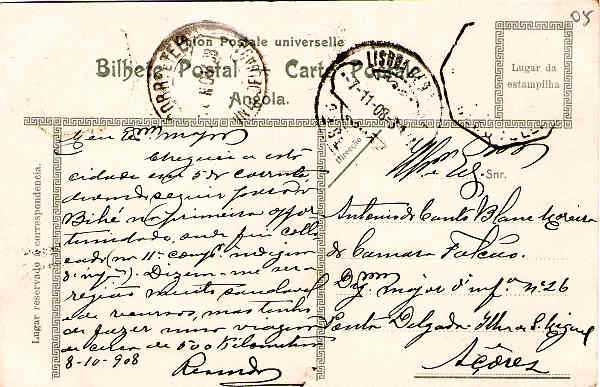 05
Union Postale universelle
Bilhete Postal Carte Postale
Angola.
Lugar da
estampilha
CORREIO
LISBOA
7-11-08
Direcção
Lugar reservado á correspondencia.
Meu Exmo major
Cheguei a esta
cidade em 5 do corrente
devendo seguir para o
Bihé na primeira oppor-
tunidade, onde fui collo-
cado (na 11ª compª. indigena
d'infª). Dizem-me ser a
região muito saudavel
de recursos, mas tenho
de fazer uma viagem
de cerca de 600 kilometros
8-10-908
Snr.
Antonio do Canto
da Camara Falcão.
Dgmo major d'infª nº 26
Ponta Delgada - Ilha de S. Miguel
Açôres